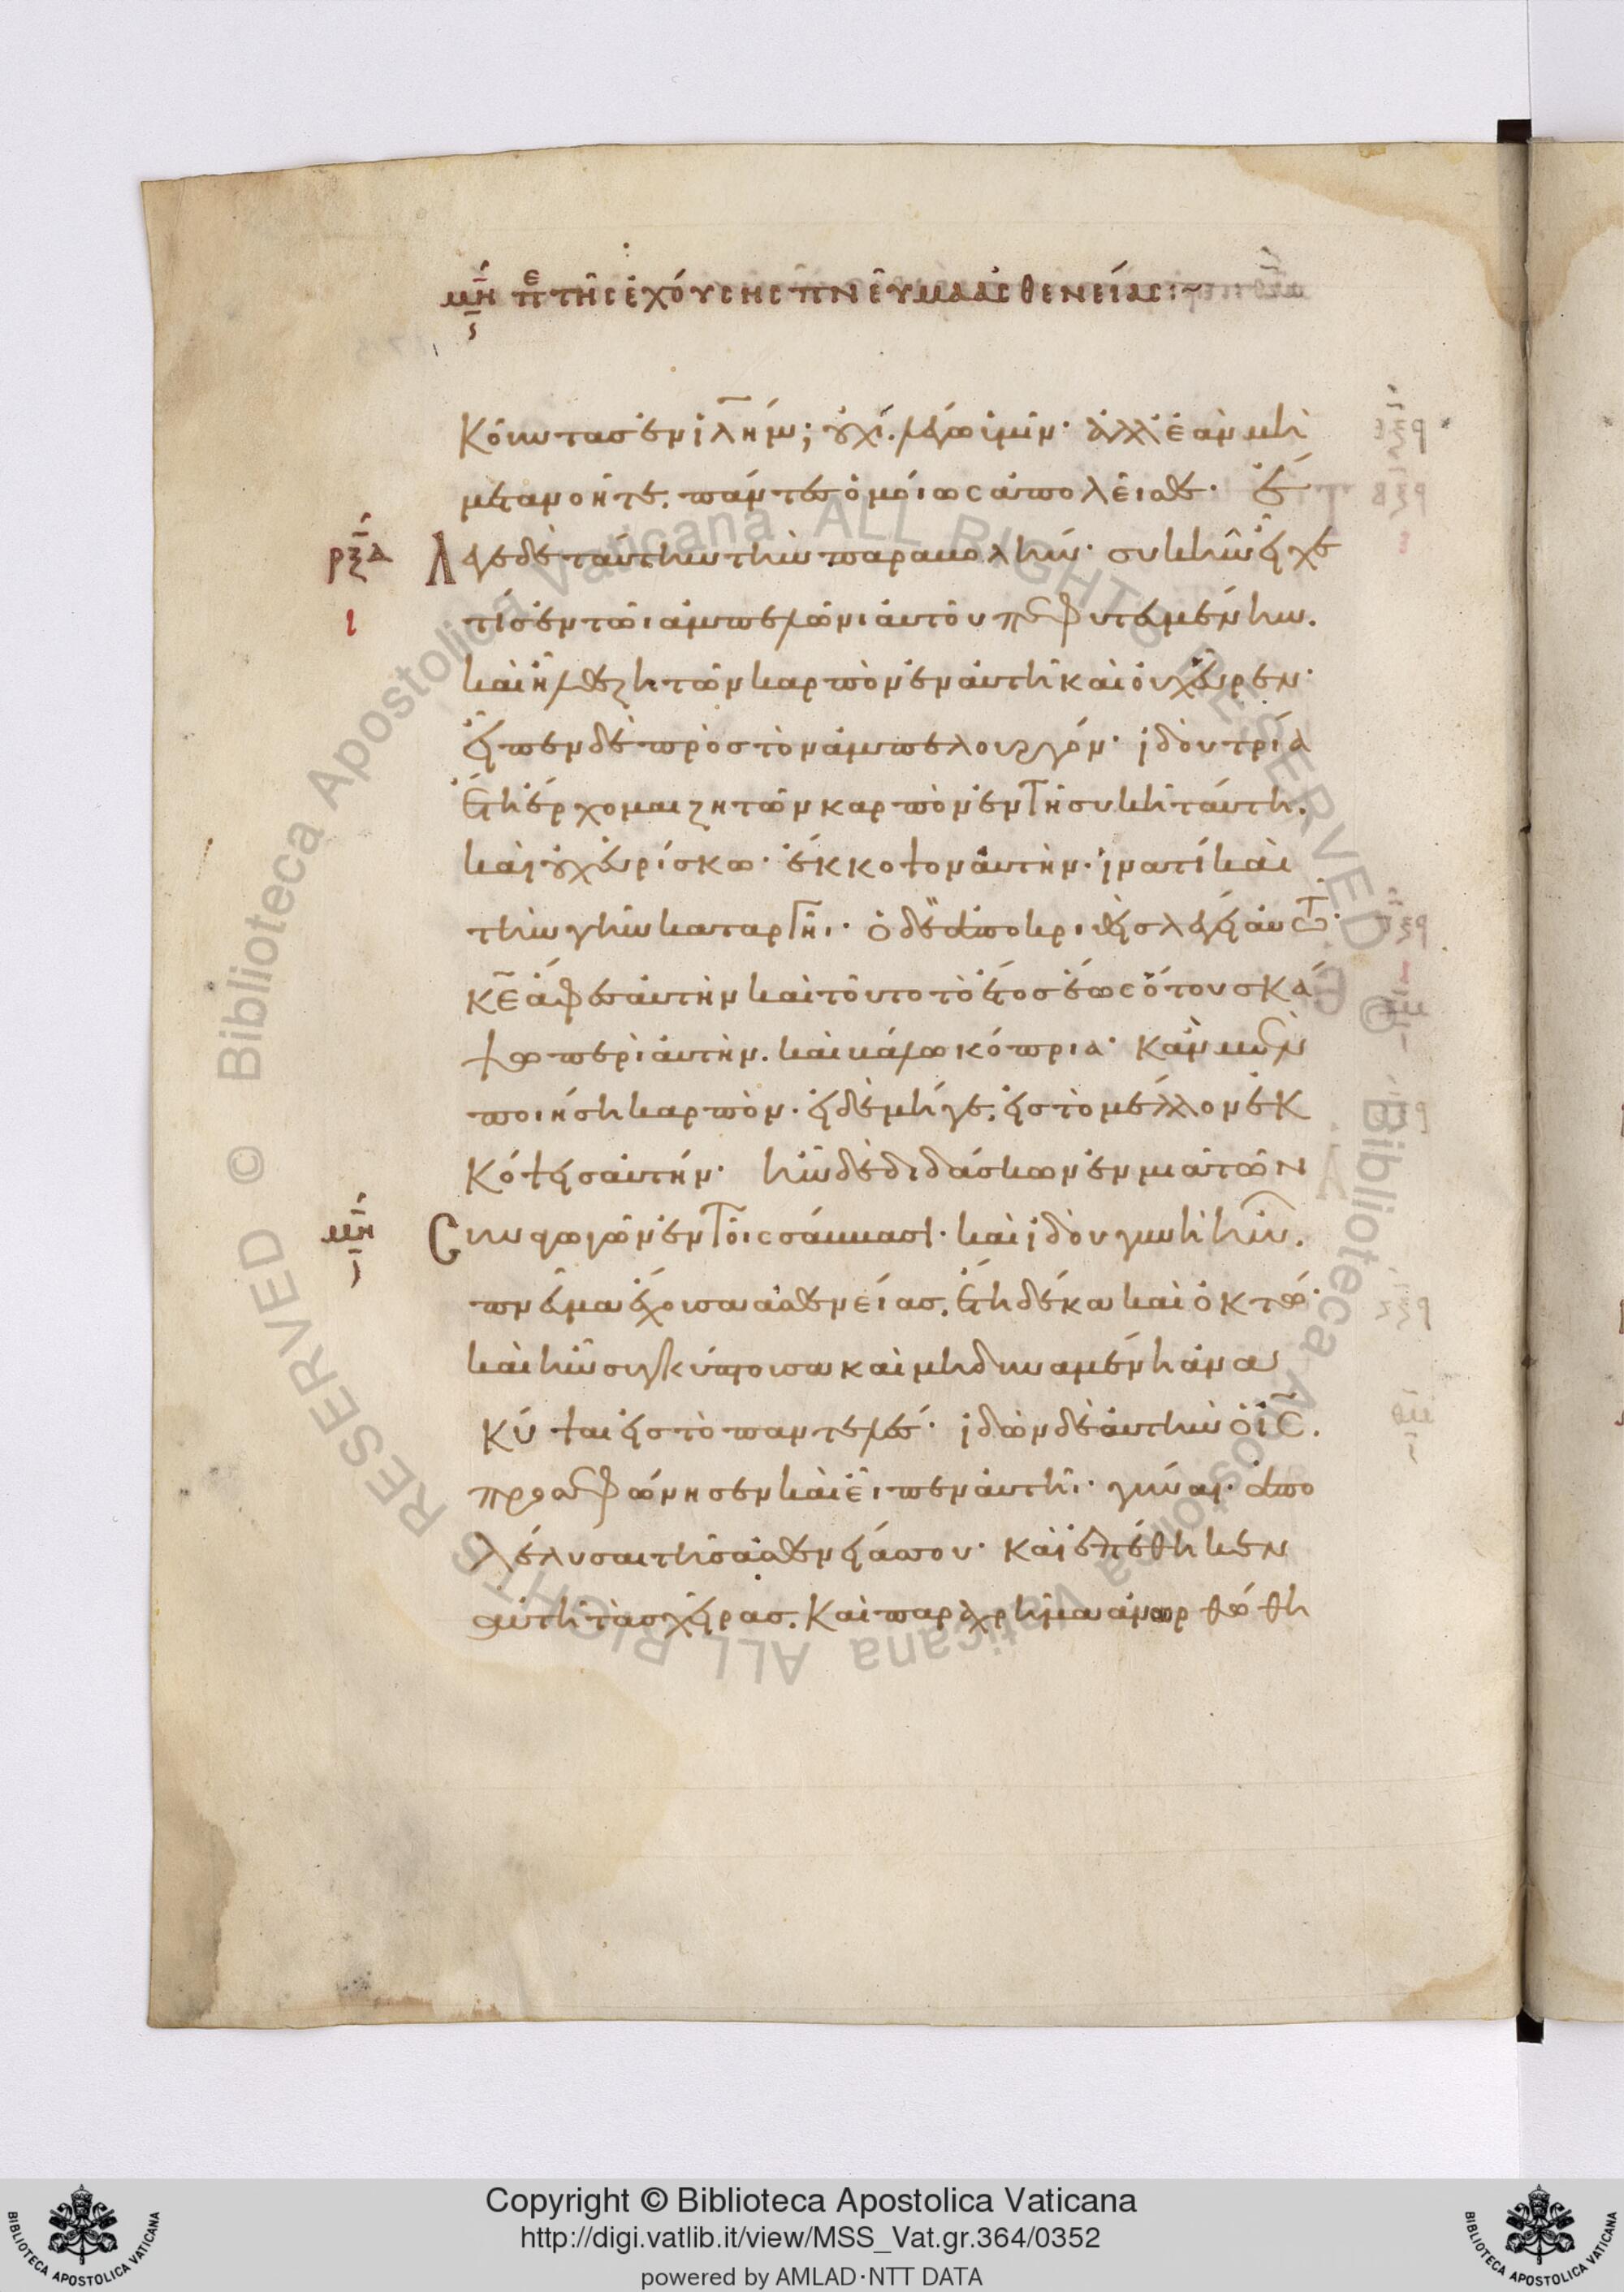 μη π̅ε τῆς ἐχούσης πνεῦμα ἀσθενείας :~
κοῦντασ ἐν ἰλημ; οὐχί. λέγω ὑμῖν· ἀλλ' ἐὰν μὴ
μετανοῆτε. πάντεσ ὁμοίως ἀπολεῖσθε·
ρξα Λ εγε δὲ ταύτην τὴν παραβολήν· συκῆν εἶχε
ι τίσ ἐν τῶι ἀμπελῶνι αὐτοῦ πεφυτεμένην.
καὶ ἦλθε ζητῶν καρπὸν ἐν αὐτῆ καὶ οὐχ εὗρεν·
εἶπεν δὲ πρὸσ τὸν ἀμπελουργόν· ἰδοὺ τρία
ἔτη ἔρχομαι ζητῶν καρπὸν ἐν τῆ συκῆ ταύτη.
καὶ οὐχ εὑρίσκω· ἔκκοψον αὐτήν· ἱνατί καὶ
τὴν γῆν καταργῆι· ὁ δὲ ἀποκριθεὶσ λέγει αὐτῶ·
κε ἄφεσ αὐτὴν καὶ τοῦτο τὸ ἔτοσ ἕως ὅτου σκά
ψω περὶ αὐτὴν. καὶ βάλω κόπρια· κἂν μὲν
ποιήση καρπὸν· εἰ δὲ μήγε. εἰσ τὸ μέλλον ἐκ
κόψεισ αὐτήν· ἦν δὲ διδάσκων ἐν μιᾶ τῶν
μη Cυναγωγῶν ἐν τοῖς σάββασι· καὶ ἰδοὺ γυνὴ ἦν.
πνεῦμα ἔχουσα ἀσθενείασ. ἔτη δέκα καὶ ὀκτώ·
καὶ ἦν συγκύπτουσα καὶ μὴ δυναμένη ἀνα
κύψαι εἰσ τὸ παντελέσ· ἰδὼν δὲ αὐτὴν ὁ ἰς.
προσεφώνησεν καὶ εἶπεν αὐτῆι· γύναι· ἀπο
λέλυσαι τῆσ ἀσθενείασ σου· καὶ ἐπέθηκεν
αὐτῆ τὰσ χεῖρασ. καὶ παραχρῆμα ἀνωρθώθη
Biblioteca Apostolica Vaticana ALL RIGHTS RESERVED ©
Biblioteca Apostolica Vaticana ALL RIGHTS RESERVED ©
Copyright © Biblioteca Apostolica Vaticana
http://digi.vatlib.it/view/MSS_Vat.gr.364/0352
powered by AMLAD·NTT DATA
BIBLIOTECA APOSTOLICA VATICANA
BIBLIOTECA APOSTOLICA VATICANA